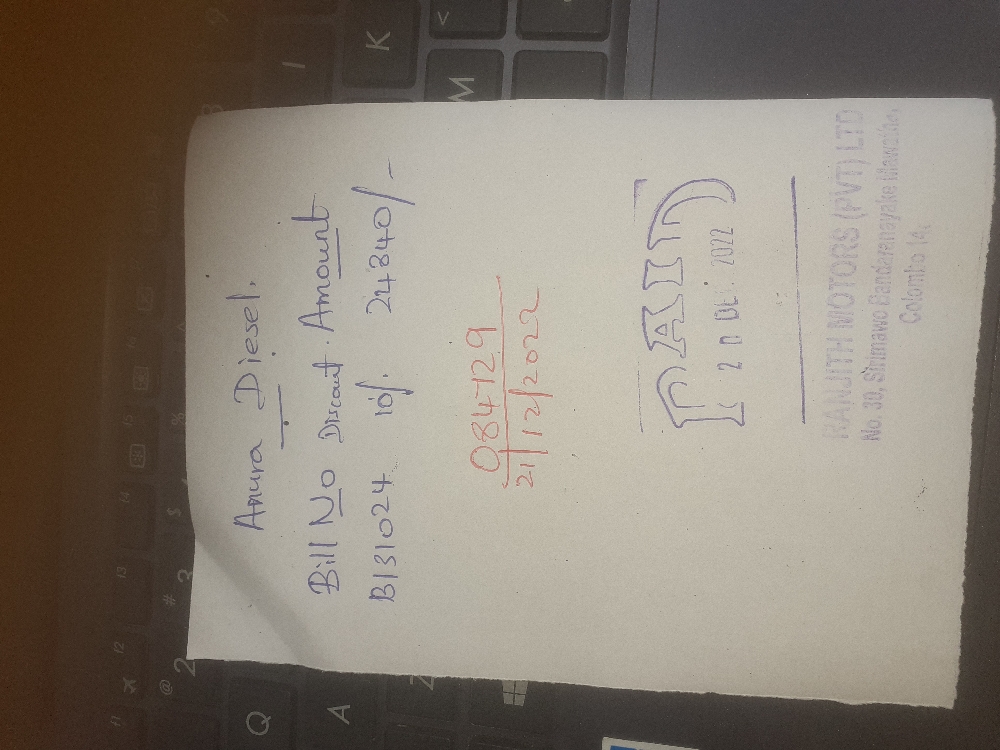 Anura Diesel.
Bill No Discount Amount
B131024 10/. 24840/-
084129
21/12/2022
PAID
20 DEC 2022
RANJITH MOTORS (PVT) LTD
No. 30, Sirimawo Bandaranayake Mawatha,
Colombo 14.
I
K
<
M
Q
A
Z
@
2
#
3
$
f1
f2
f3
f4
f5